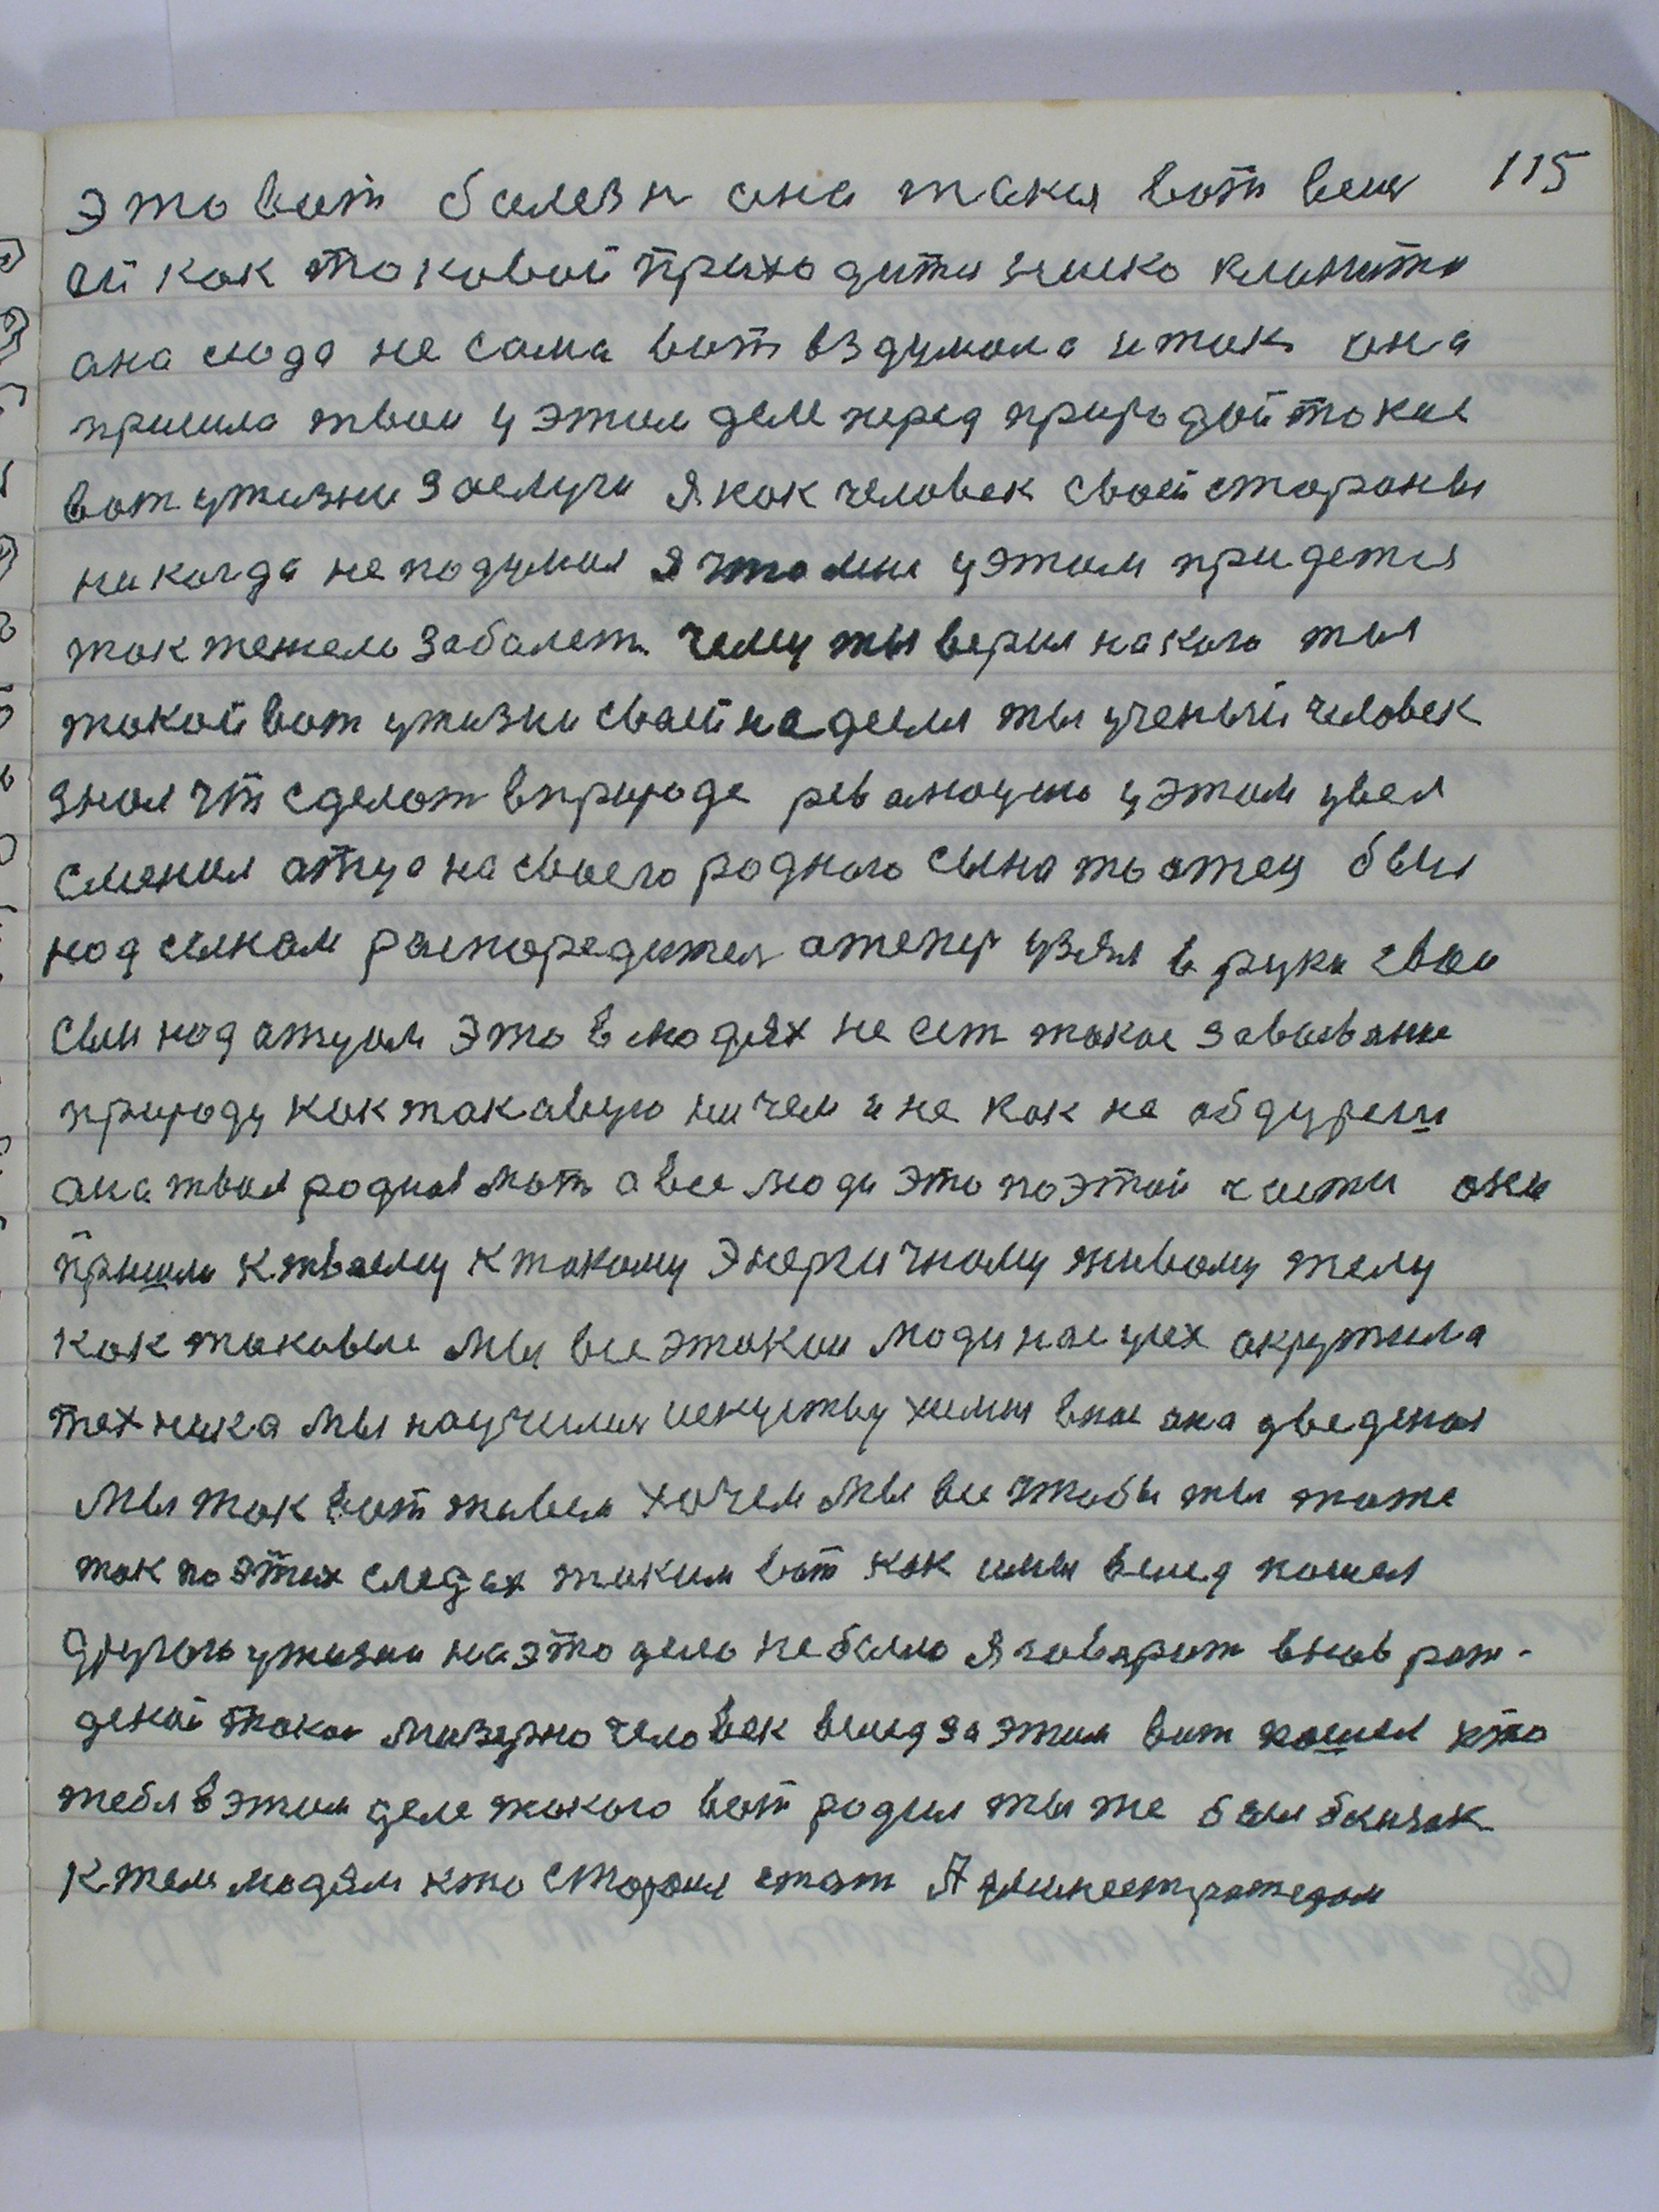 это вот балезн ана такая вот веш 115
ей как таковой приходится низко кланится
ана сюда не сама вот вздумала и так она
пришла твои у этом деле перед природой такие
вот ужизни заслуги Я как человек своей стараны
никогда не подумал Я что мне уэтом придется
так тежело заболет. чему ты верил на кого ты
такой вот ужизни своей надеял ты ученый человек
знал чт сделат вприроде револющю уэтом увел
сменил атца насвоего родного сына то отец был
над сынкам распоредител атепер узял в руки свои
сын над атцом это в людях не ест такое завоевание
природу как такавую ничем и не как не абдуреш
ана твая родная мат а все люди это поэтой части они
пришли ктваему ктакому энергичному живому телу
как таковые мы все этакии люди нас усех акружила
техника мы научился искуству химия внас ана уведеная
мы так вот живем хочем мы все чтобы ты тоже
так по этих следах таким вот как имы вслед пошел
другога ужизни на это дело небыло Я говарит внов рож-
деной такой мизерно человек вслед за этим вот пошел кто
тебя в этом деле такого вот родил ты же был близак
к тем людям кто строил етот Администратором